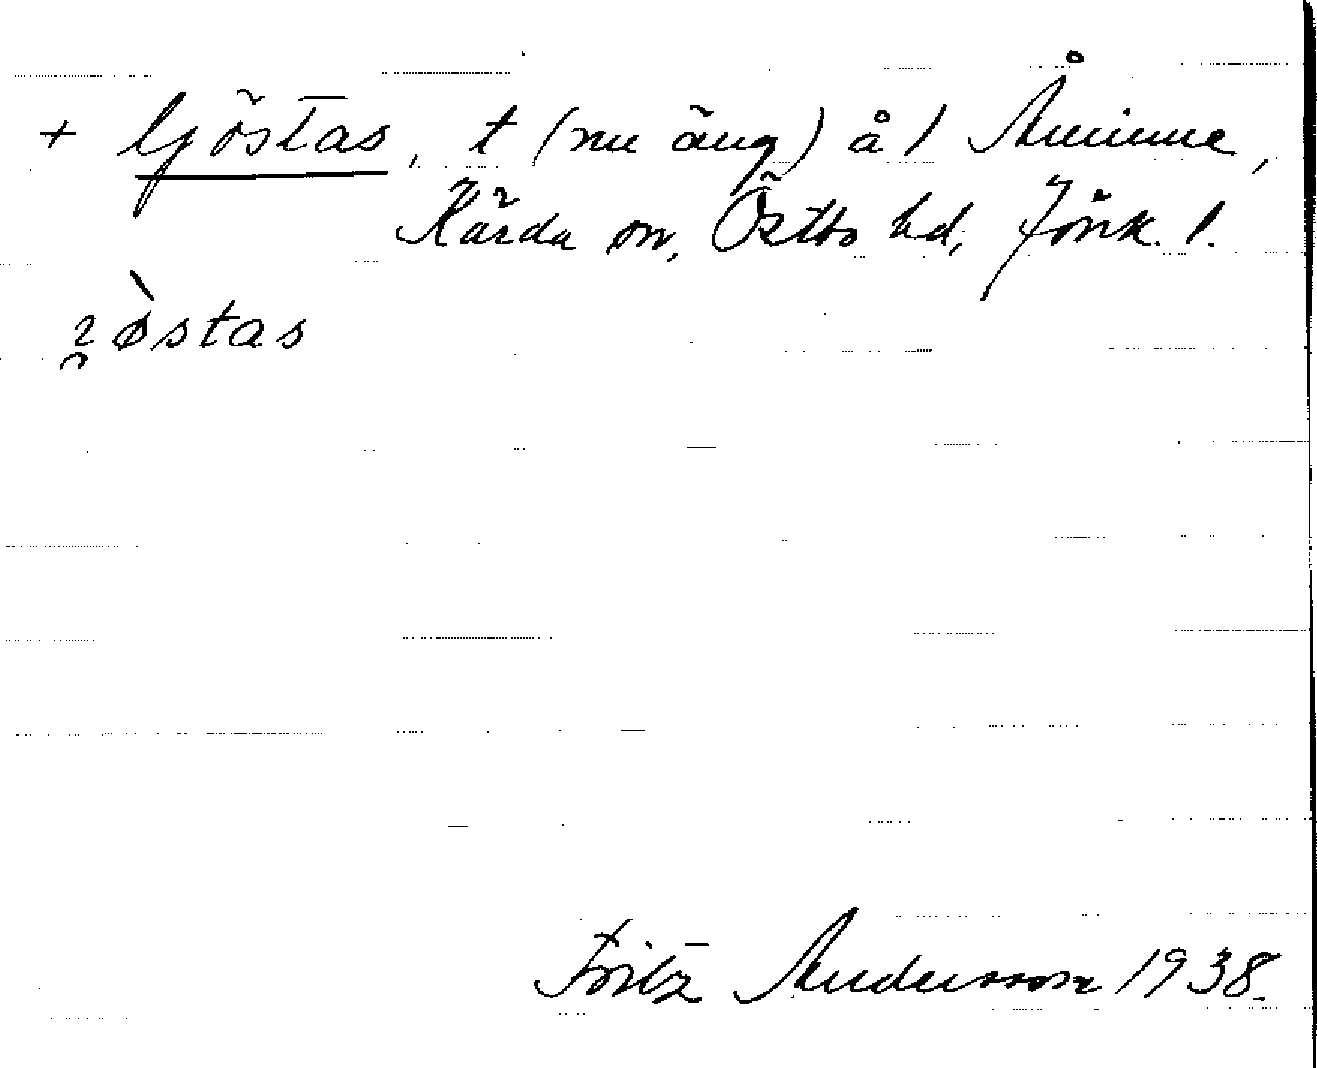 + Gjöstas, t (nu äng) å 1 Åminne,
Kärda sn, Östbo hd, Jönk. l.
Fritz Andersson 1938.